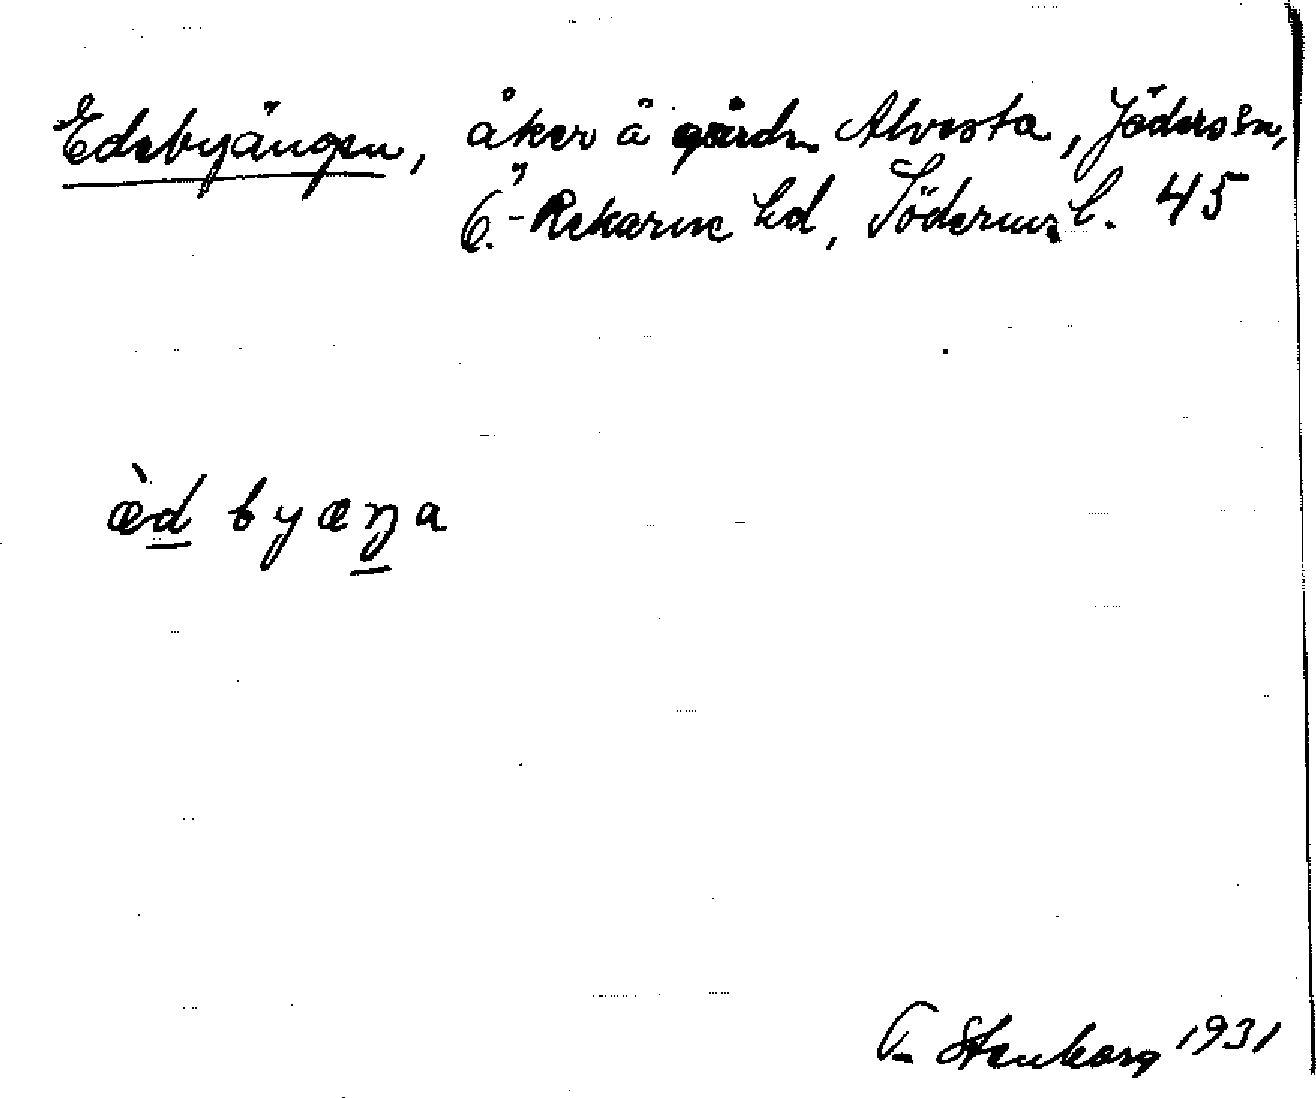 Edebyängen, åker å gårdn Alvesta, Jäders sn,
Ö.-Rekarne hd, Söderml. 45
æ̀d byæŋa
Stenborg 1931